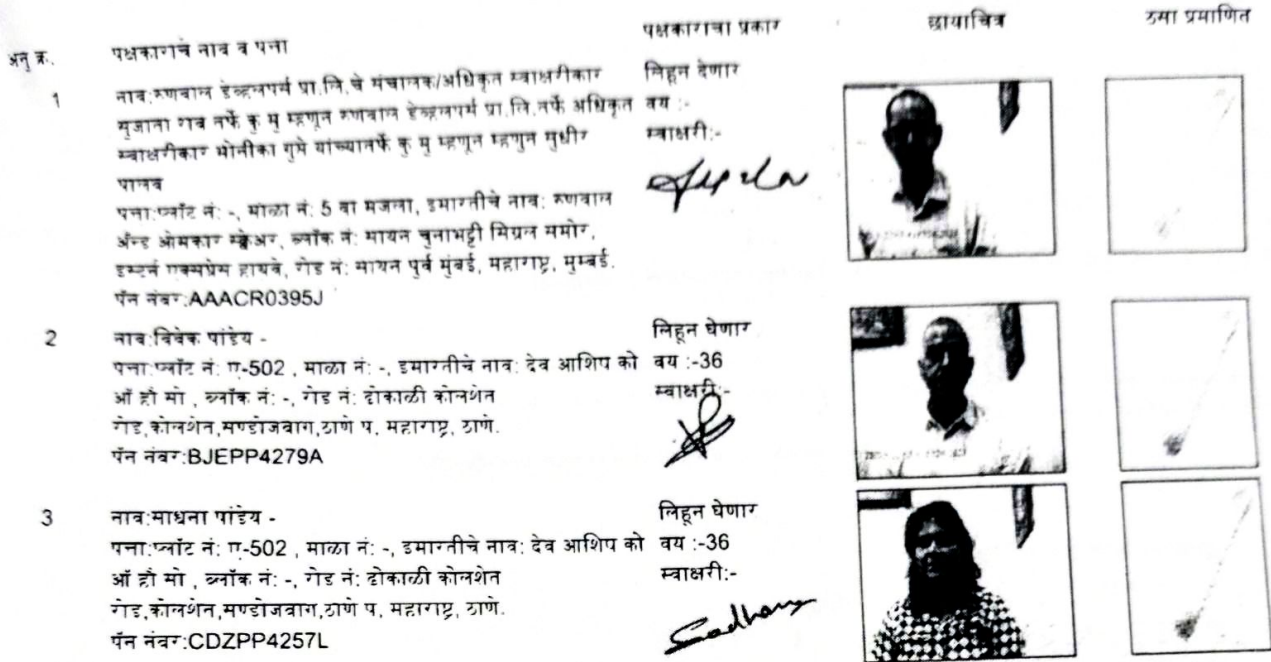 अनु क्र. पक्षकाराचे नाव व पत्ता पक्षकाराचा प्रकार छायाचित्र ठसा प्रमाणित
1 नाव:रुणवाल डेव्हलपर्स प्रा.लि.चे संचालक/अधिकृत स्वाक्षरीकार लिहून देणार
सुजाता राव तर्फे कु मु म्हणून रुणवाल डेव्हलपर्स प्रा.लि.तर्फे अधिकृत वय :-
स्वाक्षरीकार मोनीका गुप्ते यांच्यातर्फे कु मु म्हणून म्हणुन सुधीर स्वाक्षरी:-
पालव
पत्ता:प्लॉट नं: -, माळा नं: 5 वा मजला, इमारतीचे नाव: रुणवाल
अॅन्ड ओमकार स्क्वेअर, ब्लॉक नं: सायन चुनाभट्टी सिग्नल समोर,
इस्टर्न एक्सप्रेस हायवे, रोड नं: सायन पुर्व मुंबई, महाराष्ट्र, मुम्बई.
पॅन नंबर:AAACR0395J
2 नाव:विवेक पांडेय - लिहून घेणार
पत्ता:प्लॉट नं: ए-502 , माळा नं: -, इमारतीचे नाव: देव आशिष को वय :-36
ऑ हौ सो , ब्लॉक नं: -, रोड नं: ढोकाळी कोलशेत स्वाक्षरी:-
रोड,कोलशेत,सॅण्डोजबाग,ठाणे प, महाराष्ट्र, ठाणे.
पॅन नंबर:BJEPP4279A
3 नाव:साधना पांडेय - लिहून घेणार
पत्ता:प्लॉट नं: ए-502 , माळा नं: -, इमारतीचे नाव: देव आशिष को वय :-36
ऑ हौ सो , ब्लॉक नं: -, रोड नं: ढोकाळी कोलशेत स्वाक्षरी:-
रोड,कोलशेत,सॅण्डोजबाग,ठाणे प, महाराष्ट्र, ठाणे.
पॅन नंबर:CDZPP4257L Sadhana